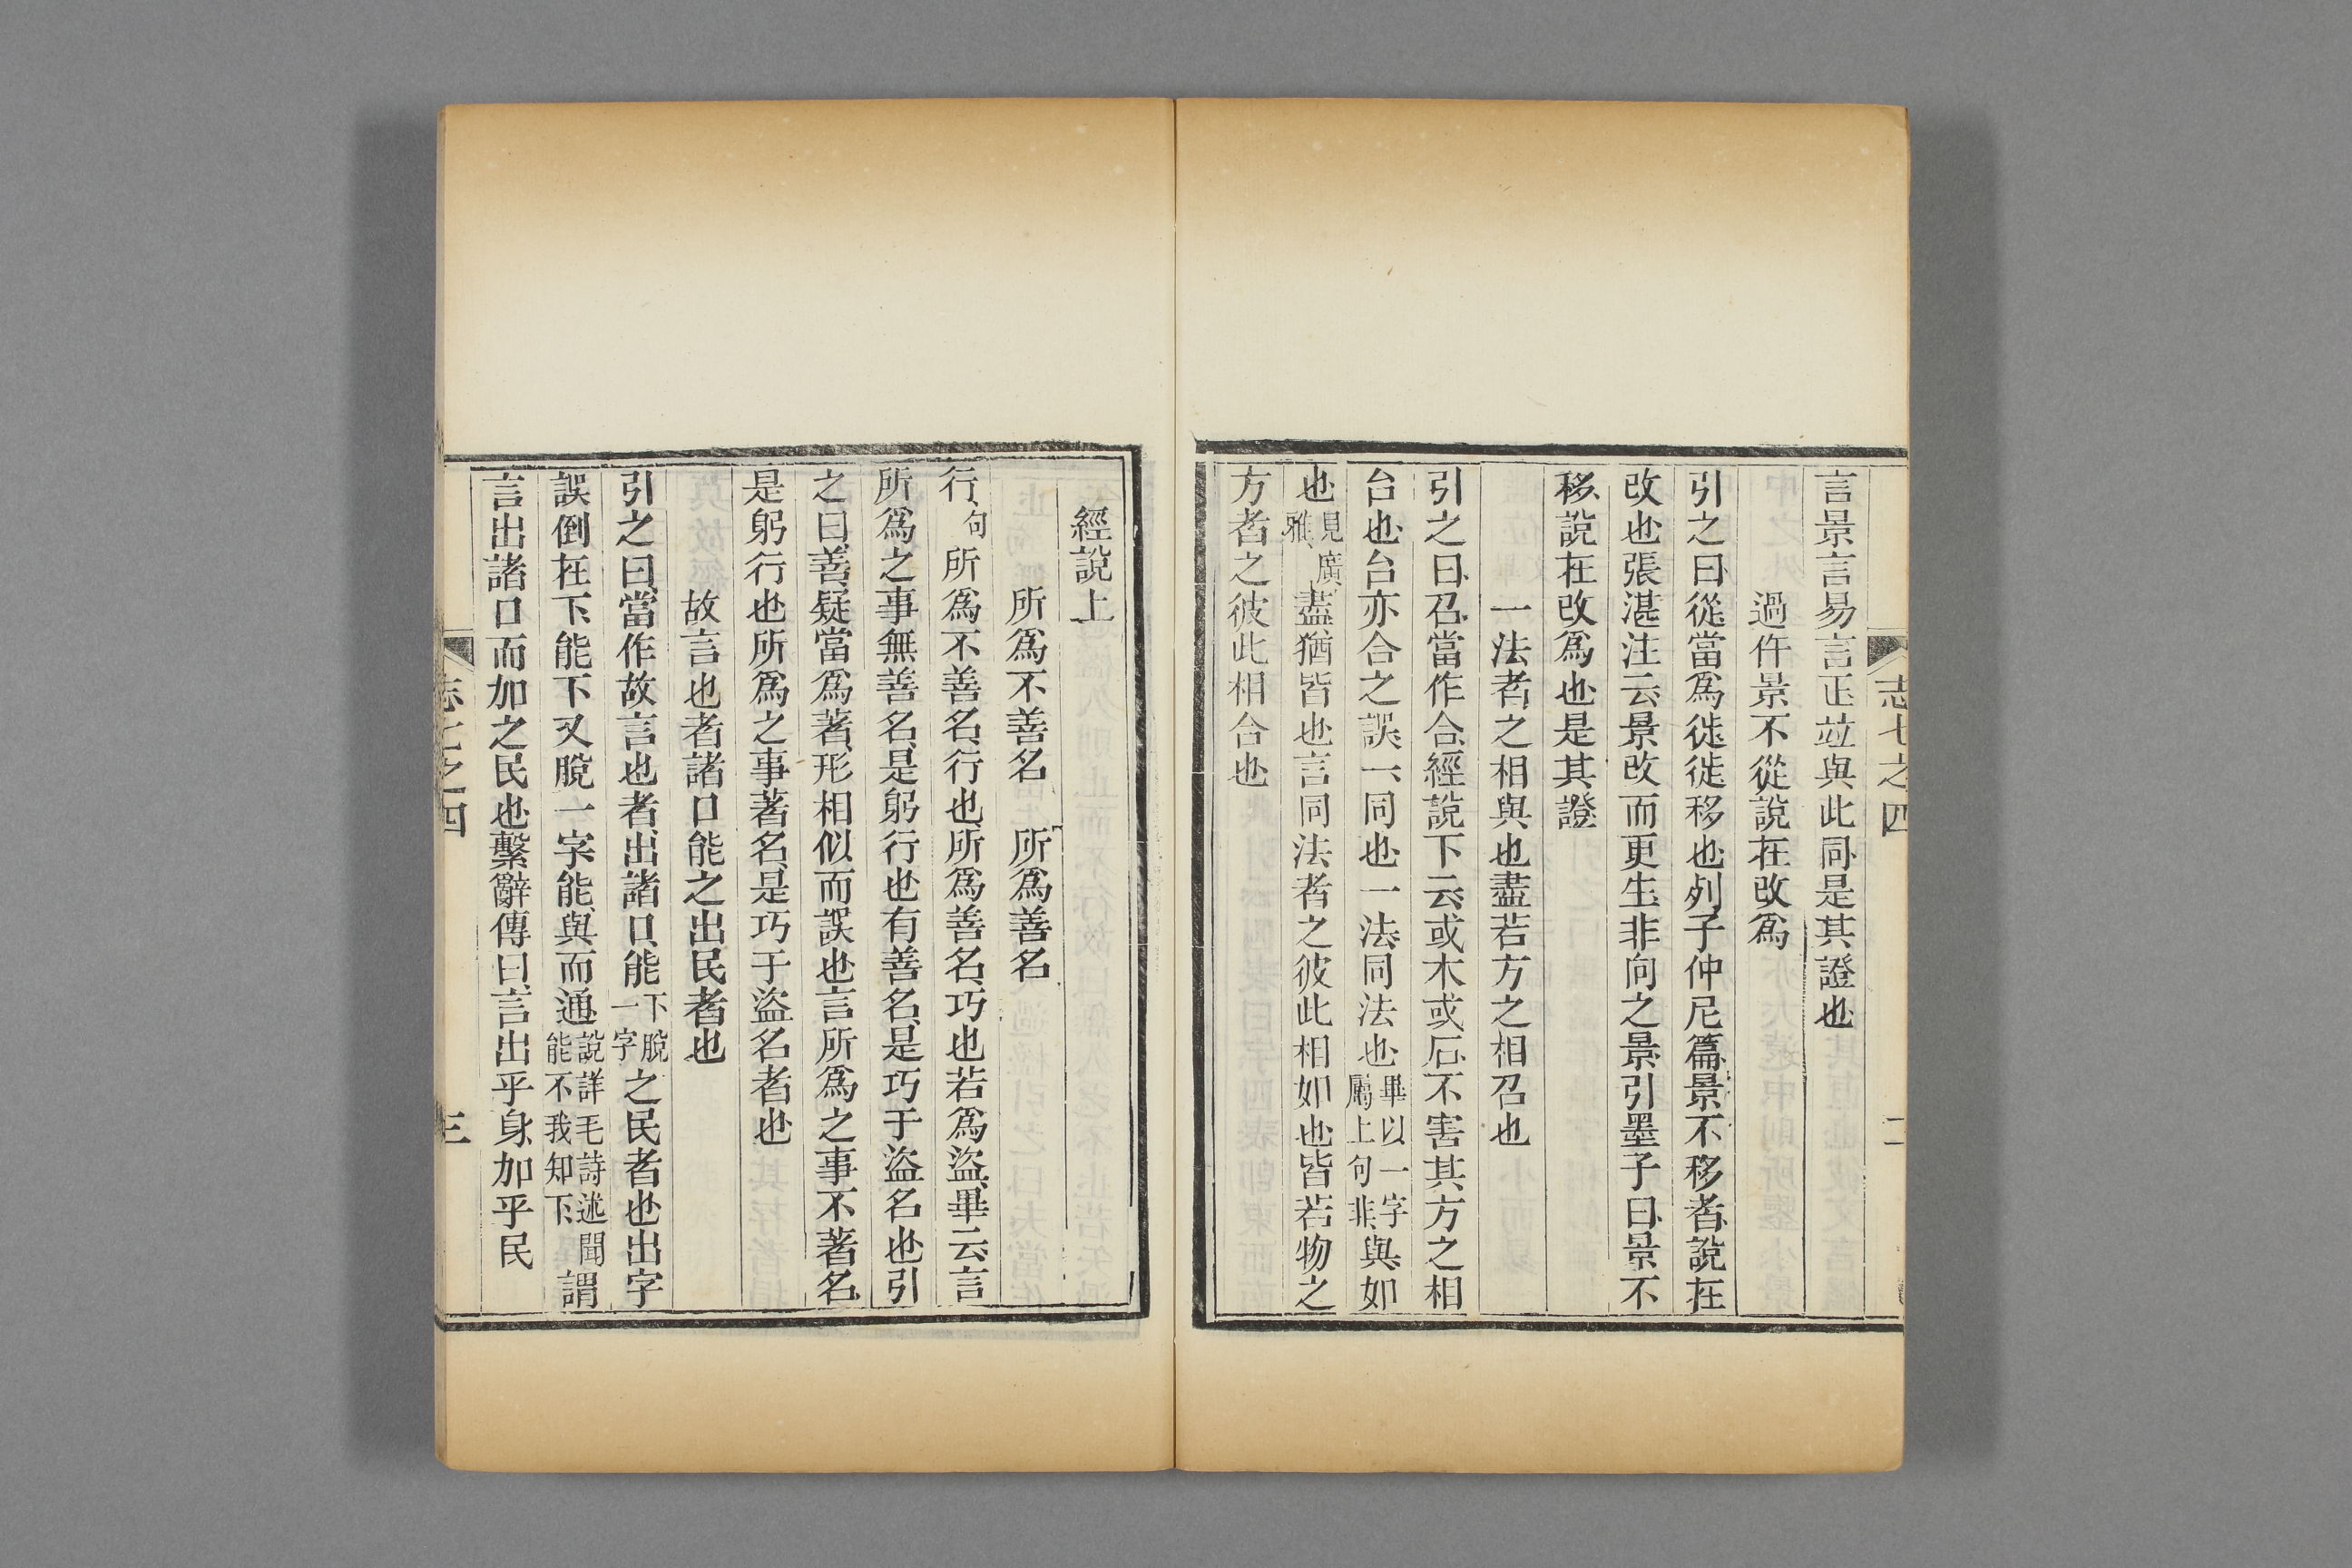 志七之四
二
言景言易言正竝與此同是其證也
過仵景不從說在改爲
引之曰從當爲徙徙移也列子仲尼篇景不移者說在
改也張湛注云景改而更生非向之景引墨子曰景不
移說在改爲也是其證
一法者之相與也盡若方之相召也
引之曰召當作合經說下云或木或石不害其方之相
台也台亦合之誤一同也一法同法也畢以一字屬上句非與如
也見廣雅盡猶皆也言同法者之彼此相如也皆若物之
方者之彼此相合也
經說上
所爲不善名　所爲善名
行句所爲不善名行也所爲善名巧也若爲盜畢云言
所爲之事無善名是躬行也有善名是巧于盜名也引
之曰善疑當爲著形相似而誤也言所爲之事不著名
是躬行也所爲之事著名是巧于盜名者也
故言也者諸口能之出民者也
引之曰當作故言也者出諸口能下脫一字之民者也出字
誤倒在下能下又脫一字能與而通說詳毛詩述聞能不我知下謂
言出諸口而加之民也繫辭傳曰言出乎身加乎民
志七之四
三